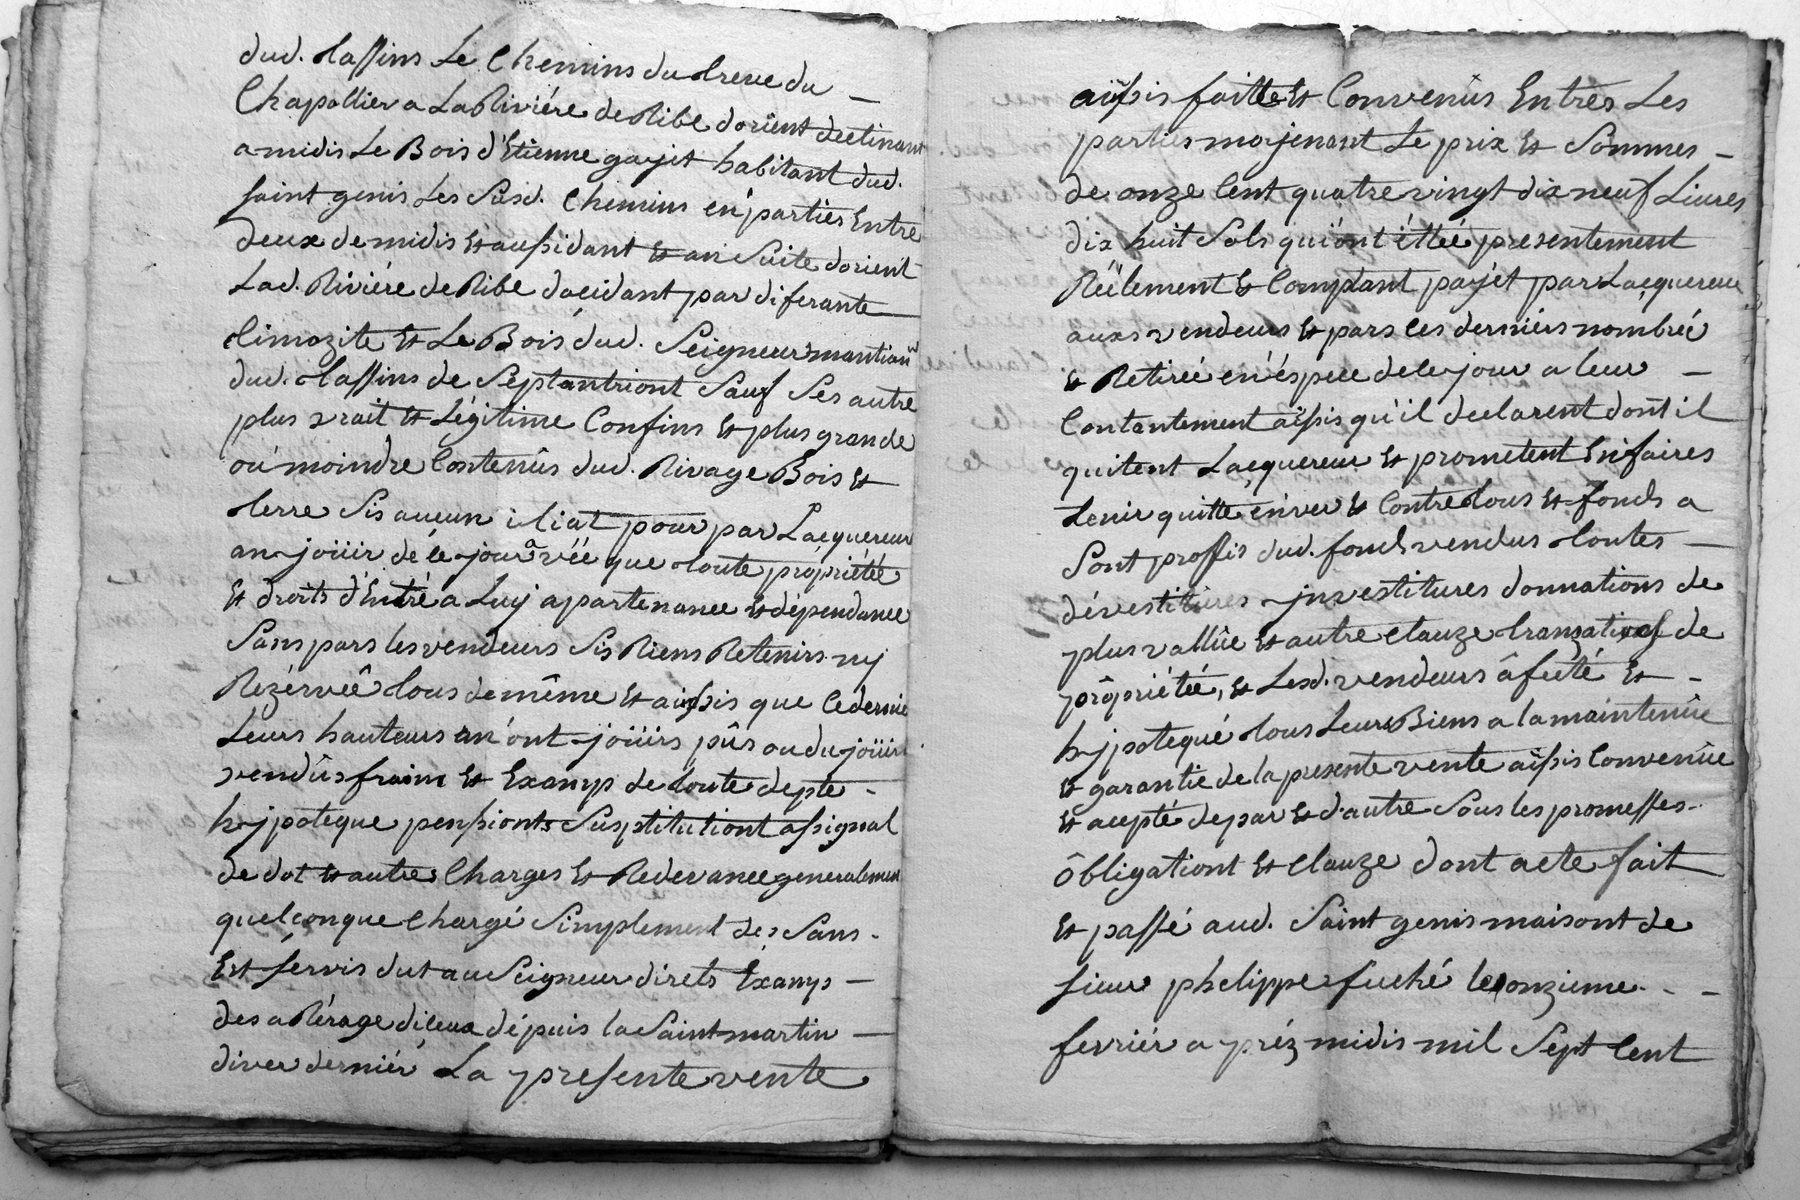 dud. Tassins Le Chemins du Creve du —
Chapallier a La Riviére de Ribe dorient dectinant
a midis Le Bois d'Etienne gayet habitant dud.
saint genis Les Susd. Chemins en parties Entre
deux de midis et aussidant et an Suite dorient
Lad. Riviére de Ribe dacidant par diferante
Cimozite et Le Bois dud. Seigneur mantionn
dud. Tassins de Septantriont Sauf Ses autre
plus vrait et Légitime Confins et plus grande
ou moindre Contenûs dud. Rivage Bois et
terre Sis aucun il i at pour par Lacquereur
an joüir dé ce jour a véé que toute propriétée
et droits d'Entré a Luy apartenance et dépendance
Sans pars les vendeurs Sis Riens Retenirs ny
Rezérvéê tous de même et aissis que Ce dernié
Leurs hauteurs an'ont joüirs pûs ou du joüir
vendûs fraim et Examp de toute depte -
hypoteque penssionts Susptitutiont assignal
de dot et autres Charges et Redevance generalement
quelconque Chargé Simplement des Sans -
Et servis dut au Seigneur direts Examps —
des a Rérage diceux dépuis la Saint martin —
diver derniér La presente vente
aissis faitte et Convenûs Entres Les
parties moyenant Le prix et Sommes —
de onze Cent quatre vingt dix neuf Livres
dix huit Sols qui ont éttéé presentement
Réélement et Comptant payét par Lacquereur
auxs vendeurs et pars ces derniérs nombréé
et Retiréé en éspece de ce jour a leur —
Contantement aissis qu'il declarent dont il
quitent Lacquereur et prometent En faires
tenir quitte enver et Contre tous et fonds a
Sont proffis dud. fonds vendus toutes —
dévestitures jnvestitures donnations de
plus vallûe et autre clauze translatif de
prôpriétéé, et Lesd. vendeurs âfecté et -
hypotequé tous Leurs Biens a la maintenûe
et garantie de la presente vente aissis Convenûe
et acepté de par et d'autre Sous les promesses -
ôbligationt et Clauze dont acte fait
et passé aud. Saint genis maisont de
sieur phelippe fuché le onzieme - -
fevriér a préz midis mil Sept Cent